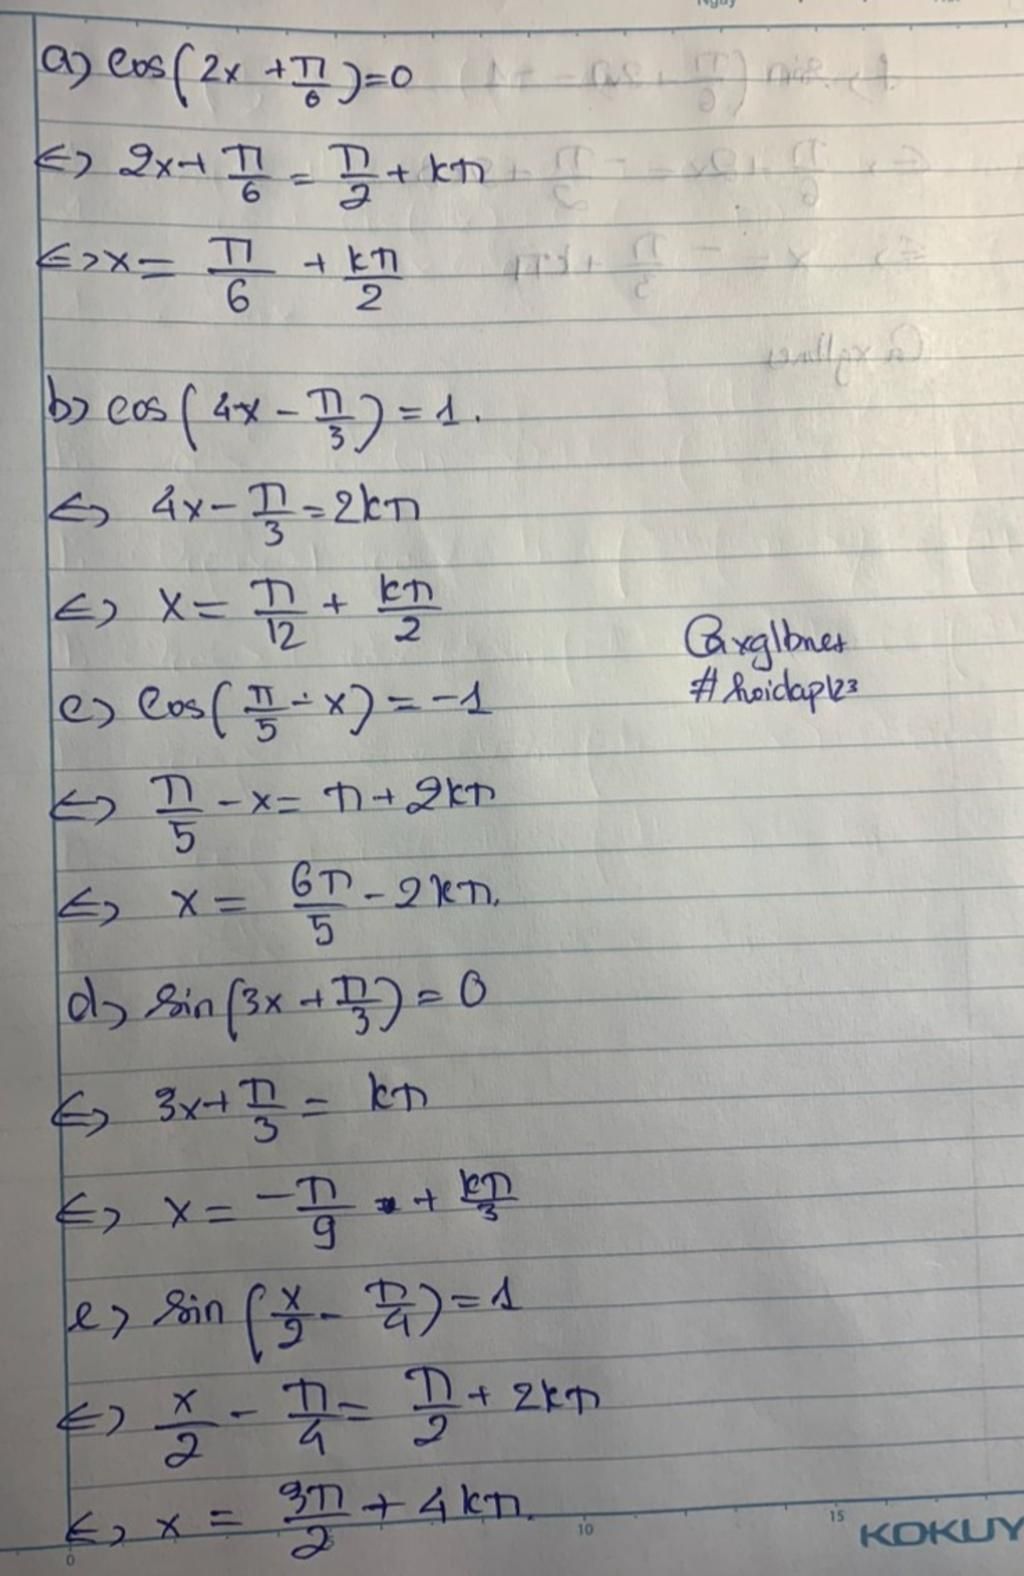 a) cos(2x + π/6) = 0
<=> 2x + π/6 = π/2 + kπ
<=> x = π/6 + kπ/2
b) cos(4x - π/3) = 1.
<=> 4x - π/3 = 2kπ
<=> x = π/12 + kπ/2
@axglbnet
#hoidap123
c) cos(π/5 - x) = -1
<=> π/5 - x = π + 2kπ
<=> x = 6π/5 - 2kπ.
d) sin(3x + π/3) = 0
<=> 3x + π/3 = kπ
<=> x = -π/9 + kπ/3
e) sin(x/2 - π/4) = 1
<=> x/2 - π/4 = π/2 + 2kπ
<=> x = 3π/2 + 4kπ.
0 10 15 KOKUY